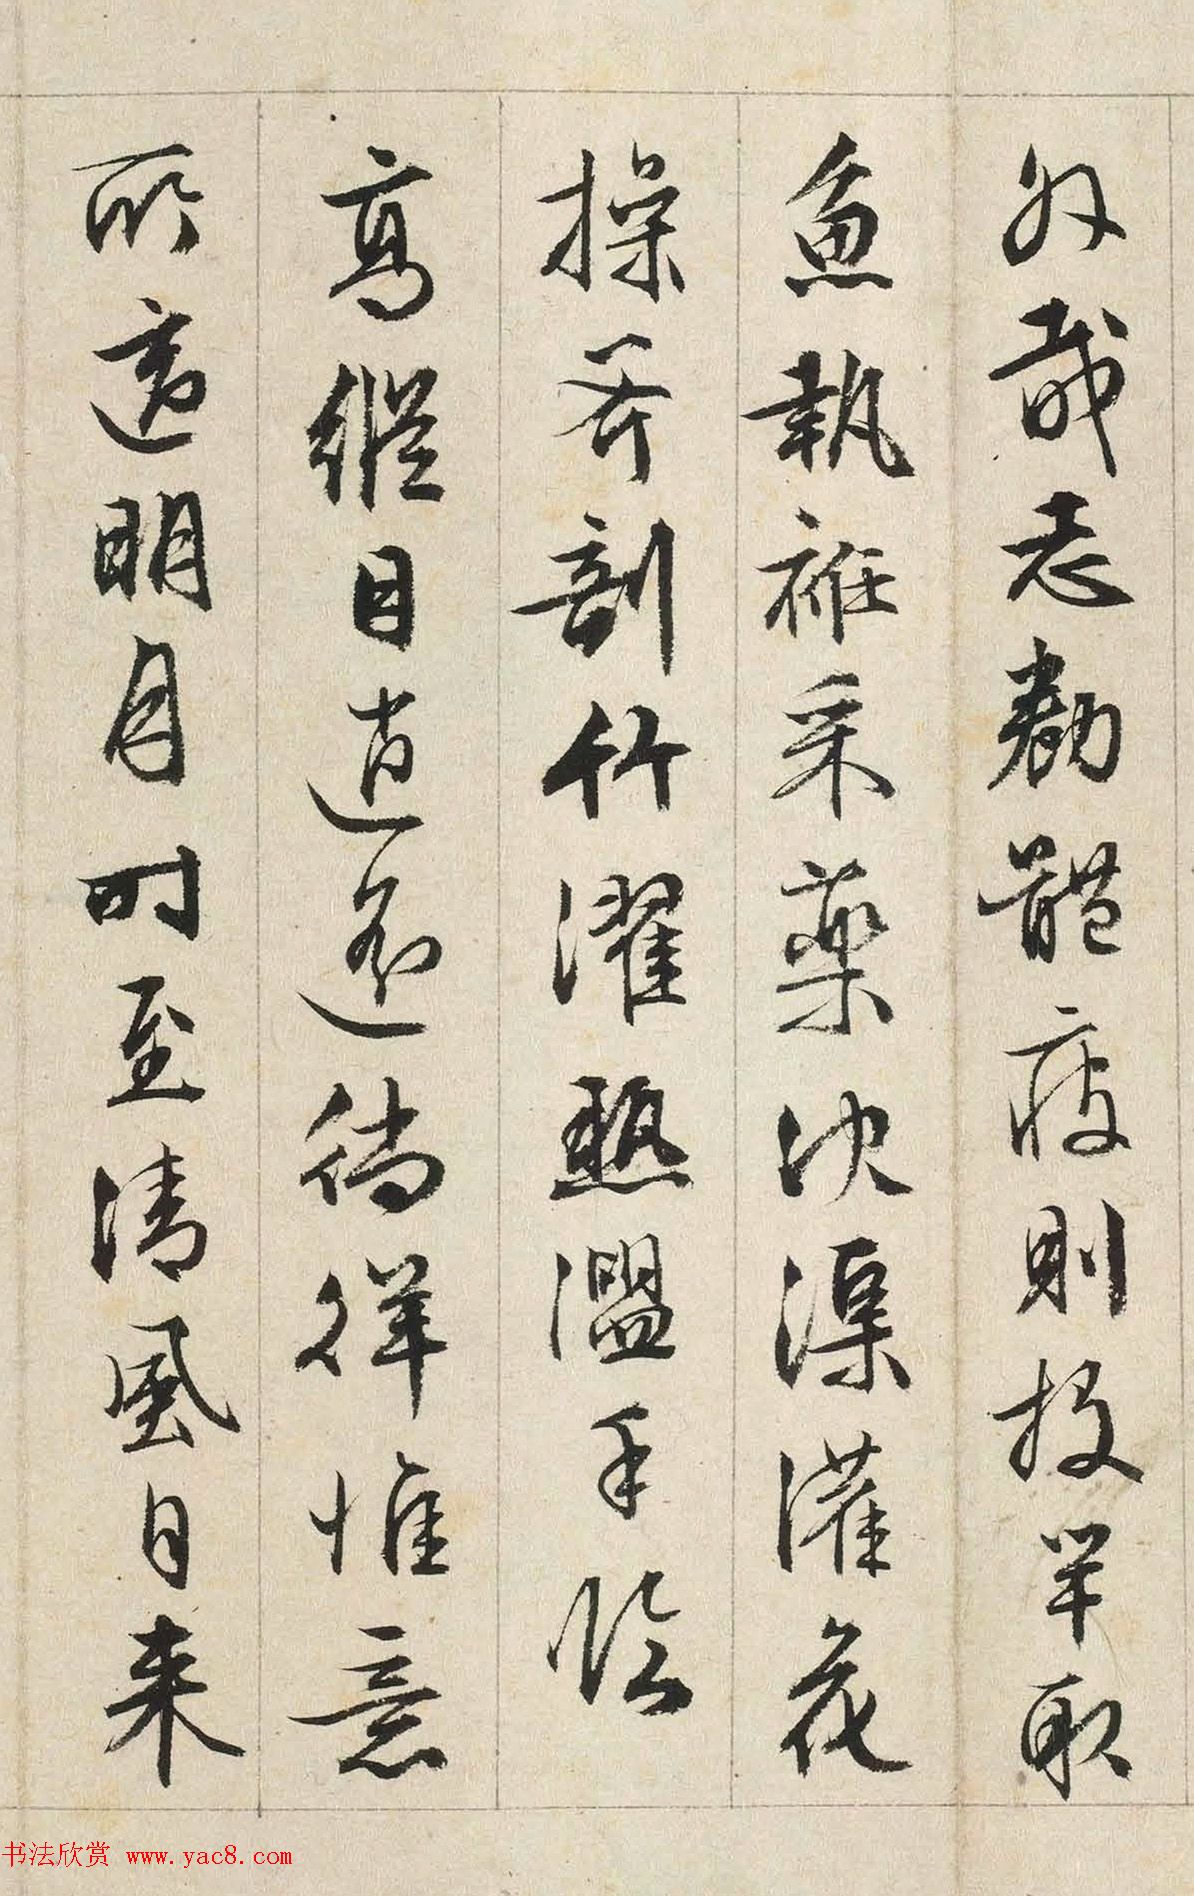 外哉志勌體疲則投竿取
魚執袵采藥决渠灌花
操斧剖竹濯熱盥手臨
高縱目逍遥徜徉惟意
所適明月时至清風自来
书法欣赏 www.yac8.com